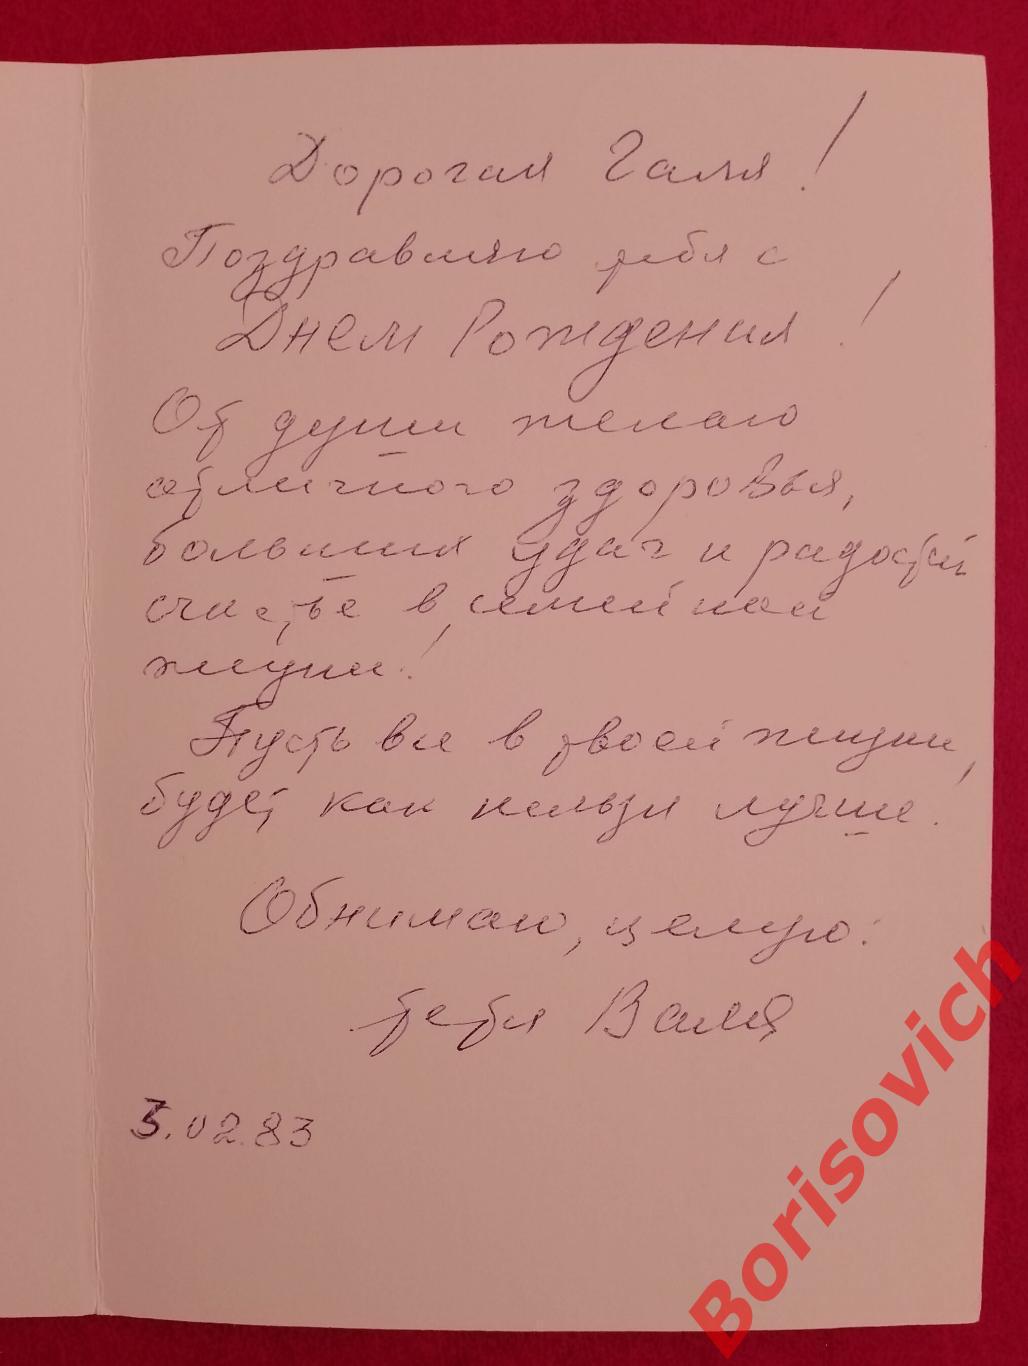 Дорогая Галя!
Поздравляю тебя с
Днем Рождения!
От души желаю
отличного здоровья,
больших удач и радостей
счастье в семейной
жизни!
Пусть все в твоей жизни,
будет как нельзя лучше!
Обнимаю, целую:
тетя Валя
5.02.83
Borisovich